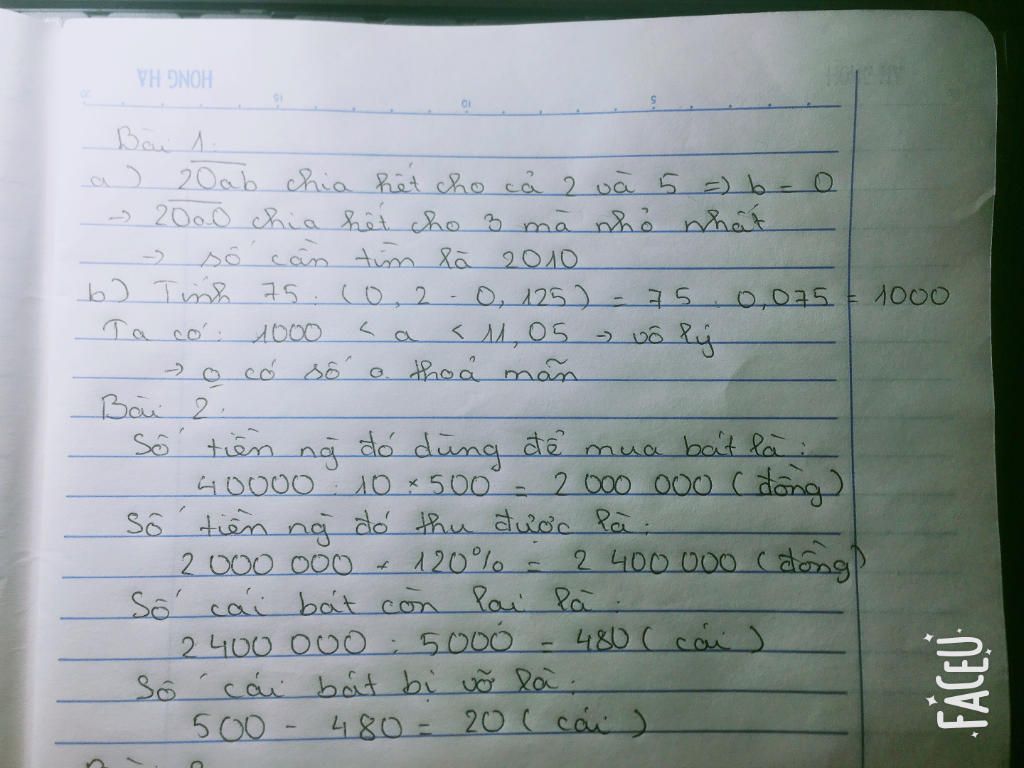 HONG HA
20 15 10 5
Bài 1:
a) 20ab chia hết cho cả 2 và 5 => b = 0
→ 20a0 chia hết cho 3 mà nhỏ nhất
→ số cần tìm là 2010
b) Tính 75 : (0,2 - 0,125) = 75 : 0,075 = 1000
Ta có: 1000 < a < 11,05 → vô lý
→ o có số a thoả mãn
Bài 2:
Số tiền ng đó dùng để mua bát là:
40000 : 10 × 500 = 2 000 000 (đồng)
Số tiền ng đó thu được là:
2 000 000 × 120% = 2 400 000 (đồng)
Số cái bát còn lại là:
2 400 000 : 5000 = 480 (cái)
Số cái bát bị vỡ là:
500 - 480 = 20 (cái)
FACEU